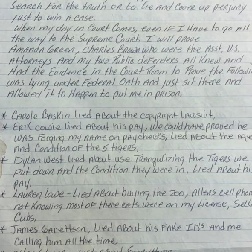 Search for the truth. or to lie and come up perjury
just to win a case.
when my day in Court comes, even if I have to go all
the way to the Supreme Court I will prove
Amanda Green, Charles Brown who were the Asst. U.S.
Attorneys and my two public defenders all knew and
Had the Evidence in the Court Room to Prove the Following
was lying under Federal Oath and just sit there and
Allowed it to Happen to put me in prison.
* Carole Baskin lied about the Copyright Lawsuit,
* Eric Cowie lied about his pay, we could have proved he
was signing my name on paychecks, lied about the age
and condition of the 5 tigers,
* Dylan West lied about use Tranquilizing the Tigers we
put down and the Condition they were in. Lied about his
pay,
* Lauren Lowe - Lied about Calling me Joe, Allens Cell phone
not knowing most of there pets were on my license, Selling
Cubs,
* James Garretson, lied about his Fake ID's and me
Calling him all the time,